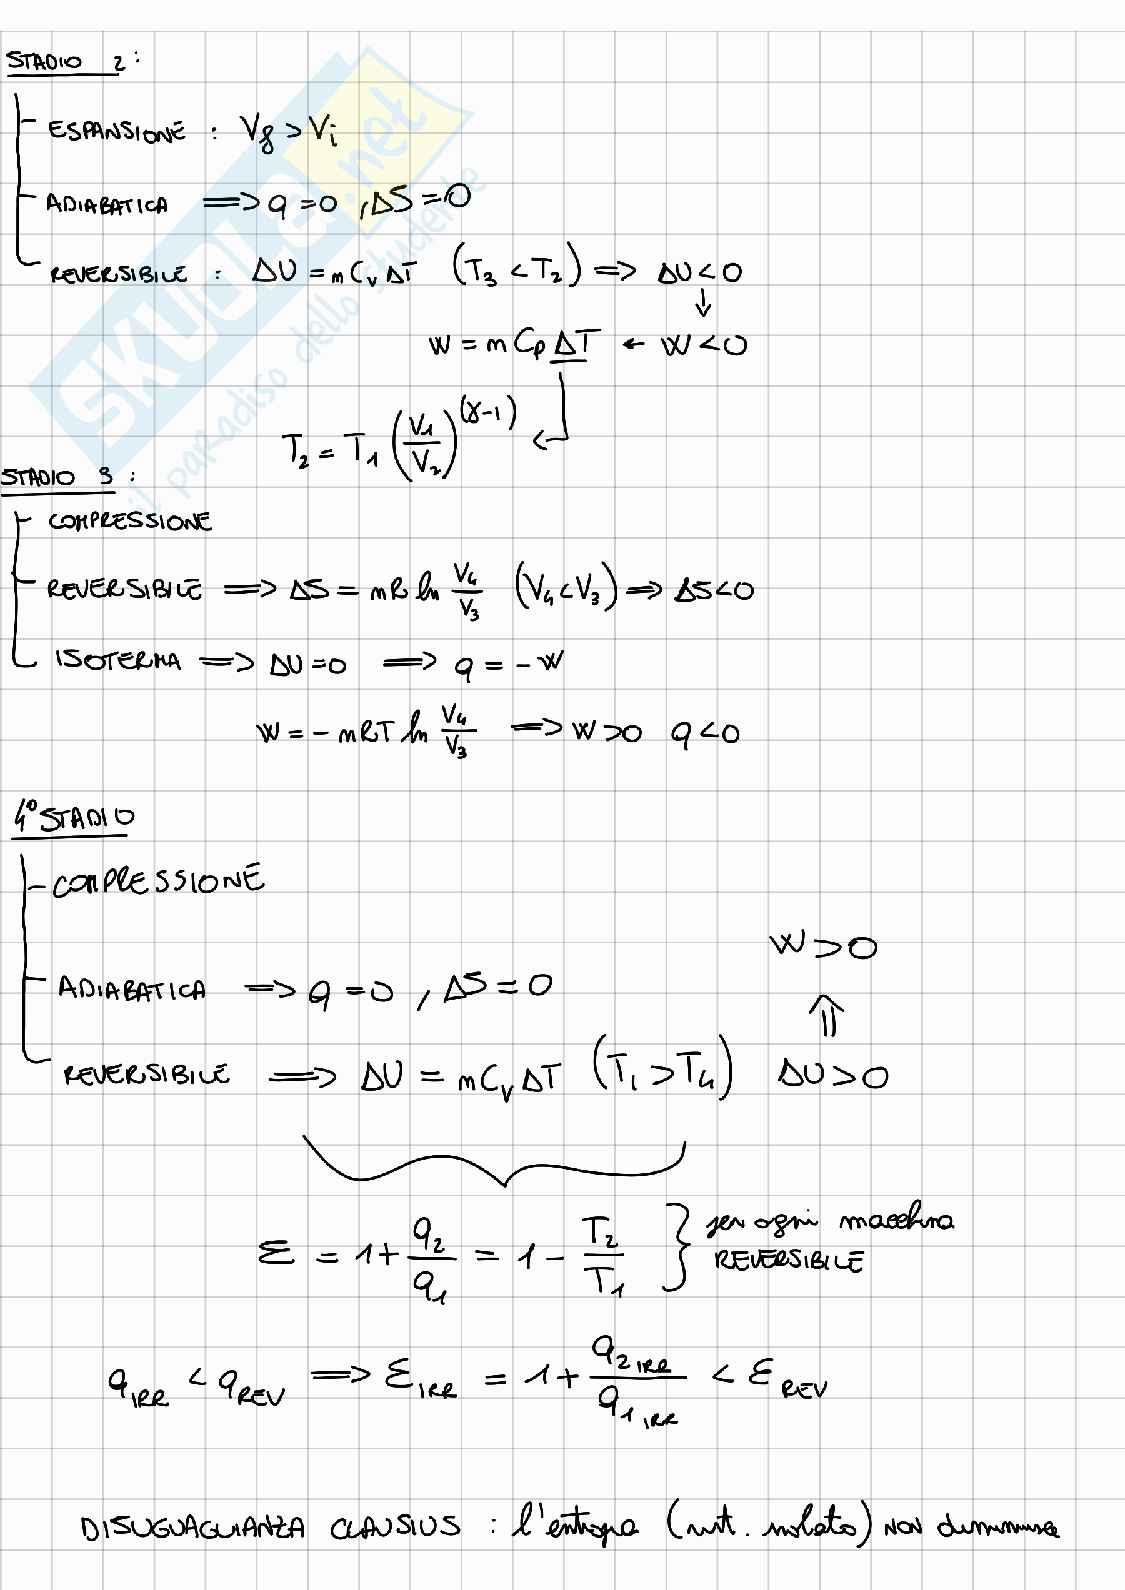 STADIO 2:
ESPANSIONE : Vf > Vi
ADIABATICA ⟹ q = 0 , ΔS = 0
REVERSIBILE : ΔU = m Cv ΔT (T3 < T2) ⟹ ΔU < 0
↓
W = m Cp ΔT ← W < 0
T2 = T1 (V1/V2)^(γ-1)
STADIO 3 :
COMPRESSIONE
REVERSIBILE ⟹ ΔS = mR ln V4/V3 (V4 < V3) ⟹ ΔS < 0
ISOTERMA ⟹ ΔU = 0 ⟹ q = - W
W = - mRT ln V4/V3 ⟹ W > 0 q < 0
4° STADIO
COMPRESSIONE
W > 0
ADIABATICA ⟹ q = 0 , ΔS = 0
⇑
REVERSIBILE ⟹ ΔU = m Cv ΔT (T1 > T4) ΔU > 0
Ɛ = 1 + q2/q1 = 1 - T2/T1 } per ogni macchina
REVERSIBILE
qIRR < qREV ⟹ ƐIRR = 1 + q2 IRR/q1 IRR < ƐREV
DISUGUAGLIANZA CLAUSIUS : l'entropia (sist. isolato) NON diminuisce
SKUOLA.net
il paradiso dello studente